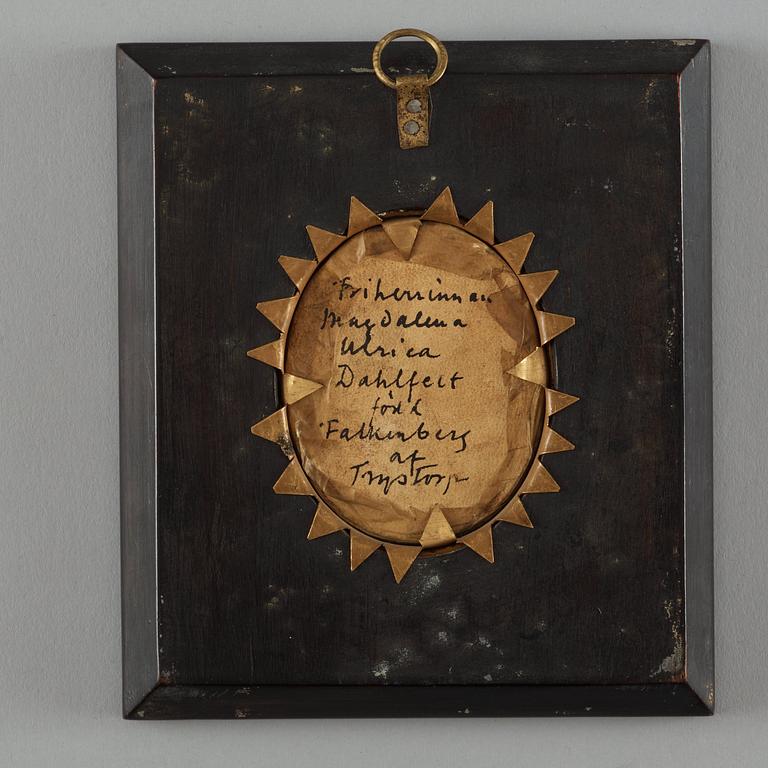 Friherrinnan
Magdalena
Ulrica
Dahlfelt
född
Falkenberg
af
Trystorp